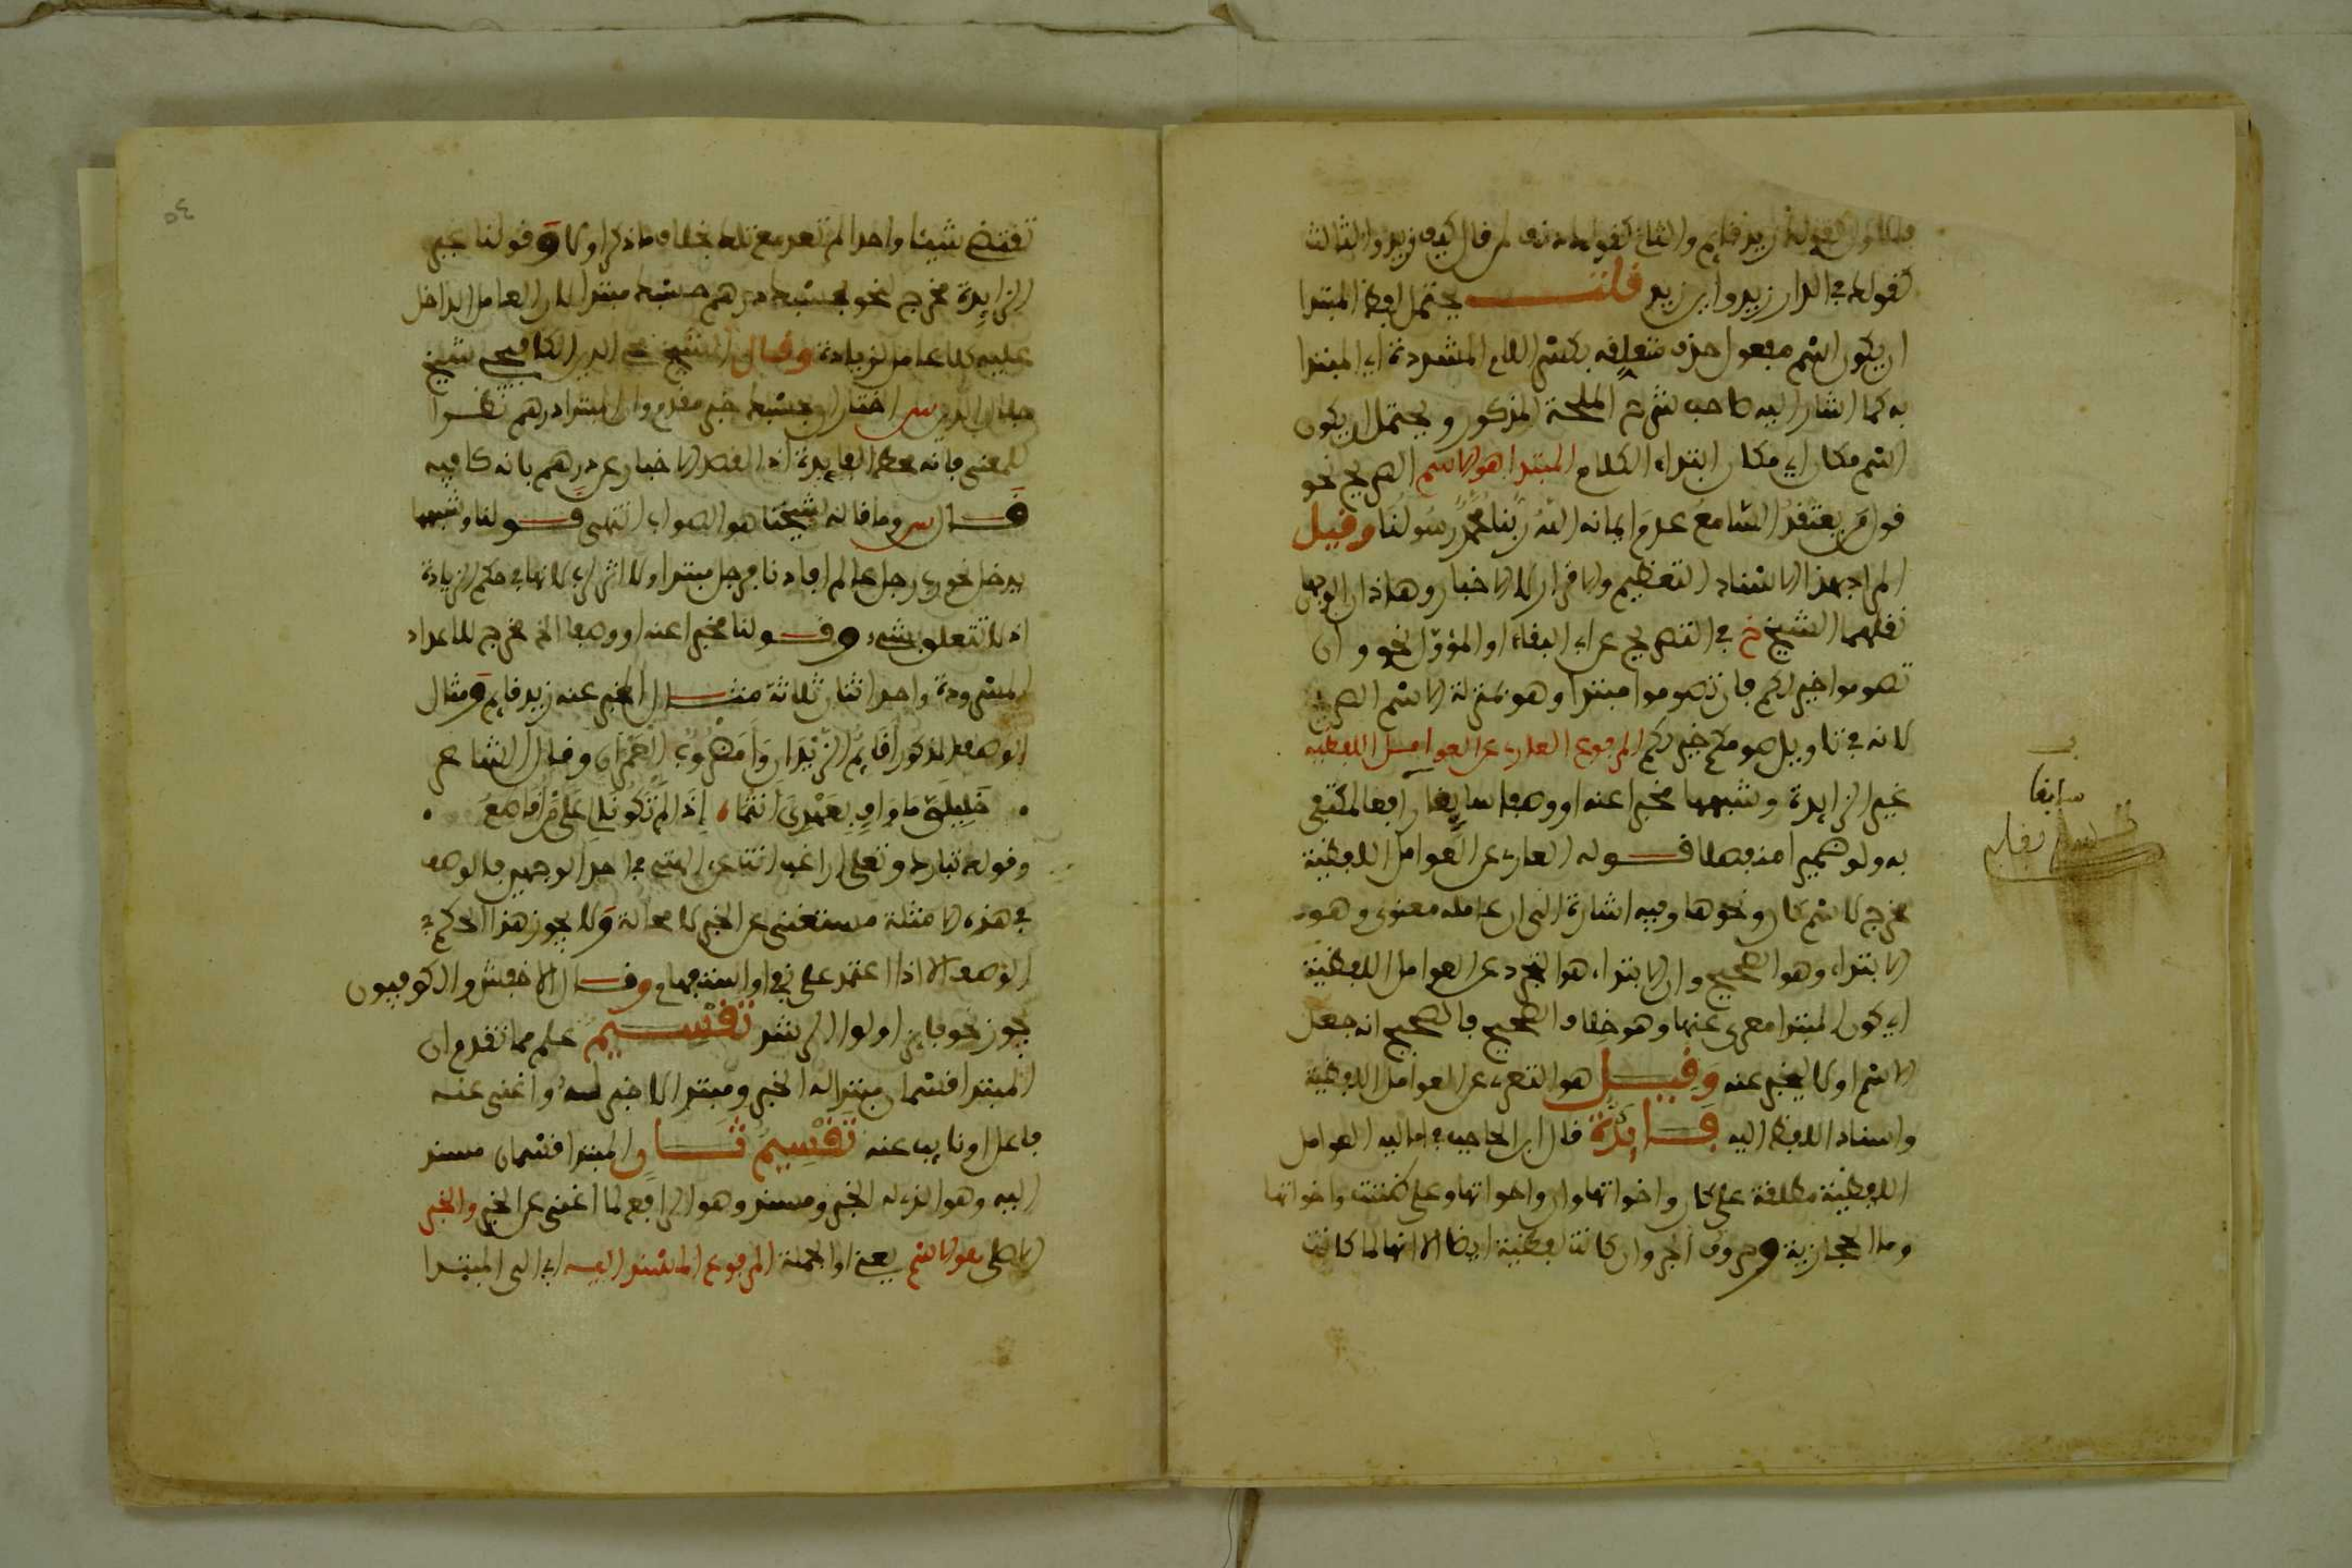 فالاول كقولك زيد قايم والثاني كقولك دنف لمن قال كيف زيد والثالث
كقولك في الدار زيد واين زيد قلت يحتمل لفظ المبتدا
ان يكون اسم مفعول حذف متعلقه بكسر اللام المشددة اي المبتدا
به كما اشار اليه صاحب شرح الملحة المذكور ويحتمل ان يكون
اسم مكان اي مكان ابتداء الكلام المبتدا هو الاسم الصريح نحو
قول من يعتقد السامع عدم ايمانه الله ربنا محمد رسولنا وقيل
المراد بهذا الاسناد التعظيم والاقرار لا الاخبار وهاذان الوجهان
نقلهما الشيخ خ في التصريح عن ابي البقاء او المؤول نحو وان
تصوموا خير لكم فان تصوموا مبتدا وهو بمنزلة الاسم الصريح
لانه في تاويل صومكم خير لكم المرفوع العاري عن العوامل اللفظية
غير الزايدة وشبهها مخبرا عنه او وصفا سابقا رافعا لمكتفى
به ولو ضميرا منفصلا قوله العاري عن العوامل اللفظية
مخرج لاسم كان ونحوها وفيه اشارة الى ان عامله معنوي وهو
الابتداء وهو الصحيح وان الابتداء هو التجرد عن العوامل اللفظية
اي كون المبتدا معرى عنها وهو خلاف الصحيح فالصحيح انه جعل
الاسم اولا ليخبر عنه وقيل هو التعري عن العوامل اللفظية
واسناد اللفظ اليه فايدة قال ابن الحاجب في اماليه العوامل
اللفظية مطلقة على كان واخواتها وان واخواتها وعلى ظننت واخواتها
وما الحجازية وحروف الجر وان كانت لفظية ايضا الا انها لما كانت
سابقا
تقتضي شيئا واحدا لم تعد مع تلك بخلاف ما ذكر اولا وقولنا غير
الزايدة مخرج نحو بحسبك درهم حسبك مبتدا لان العامل الداخل
عليه كلا عامل لزيادته وقال الشيخ محي الدين الكافيجي شيخ
جلال الدين س اختار ان بحسبك خبر مقدم وان المبتدا درهم نظرا
للمعنى فانه محط الفايدة اذ القصد الاخبار عن درهم بانه كافيه
قال س وما قاله شيخنا هو الصواب انتهى قولنا وشبهها
يدخل نحو رب رجل عالم افادنا فرجل مبتدا ولا اثر لرب لانها في حكم الزيادة
اذ لا تتعلق بشيء وقولنا مخبرا عنه او وصفا الخ مخرج للاعداد
المسرودة واحد اثنان ثلاثة مثال المخبر عنه زيد قايم ومثال
الوصف المذكور اقايم الزيدان وامضروب العمران وقال الشاعر
خليلي ما واف بعهدي انتما، اذا لم تكونا لي على من اقاطع
وقوله تبارك وتعلى اراغب انت عن الهتي في احد الوجهين فالوصف
في هذه الامثلة مستغنى عن الخبر لا محالة ولا يجوز هذا الحكم في
الوصف الا اذا اعتمد على نفي او استفهام وقال الاخفش والكوفيون
يجوز نحو فايز اولوا الرشد تقسيم علم مما تقدم ان
المبتدا قسمان مبتدا له الخبر ومبتدا لا خبر له واغنى عنه
فاعل او نايب عنه تقسيم ثان المبتدا قسمان مسند
اليه وهو الذي له الخبر ومسند وهو الرافع لما اغنى عن الخبر والخبر
الاصلي هو الاسم يعني او الجملة المرفوع المسند اليه اي الى المبتدا